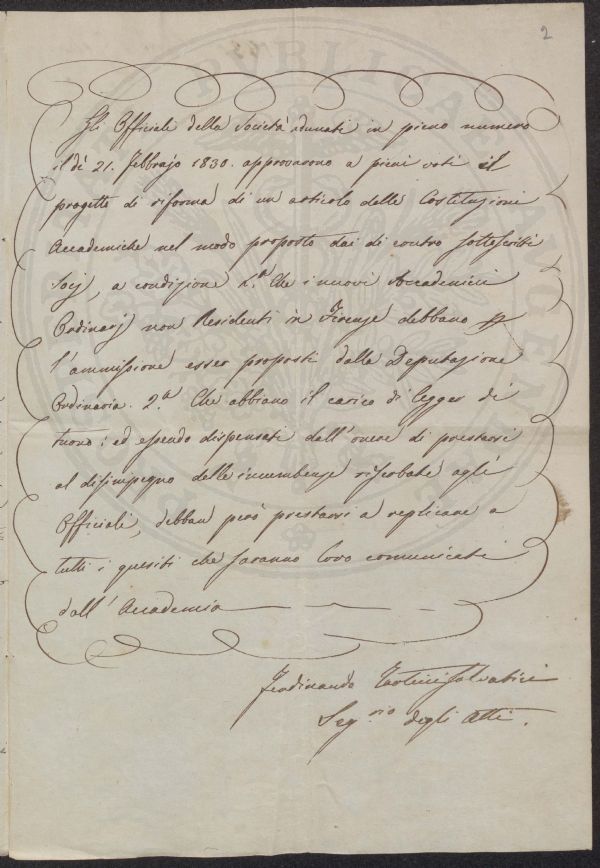 2
Gli Officiali della Società adunati in pieno numero
il dì 21. Febbrajo 1830. approvarono a pieni voti il
progetto di riforma di un articolo delle Costituzioni
Accademiche nel modo proposto dai di contro sottoscritti
Socj, a condizione 1.ª Che i nuovi Accademici
Ordinarj non Residenti in Firenze debbano p
l'ammissione esser proposti dalla Deputazione
Ordinaria. 2.ª Che abbiano il carico di legger di
turno: ed essendo dispensati dall'onere di prestarsi
al disimpegno delle incumbenze riserbate agli
Officiali, debban però prestarsi a replicare a
tutti i quesiti che saranno loro comunicati
dall'Accademia
Ferdinando Tartini Salvatici
Seg.rio degli Atti.